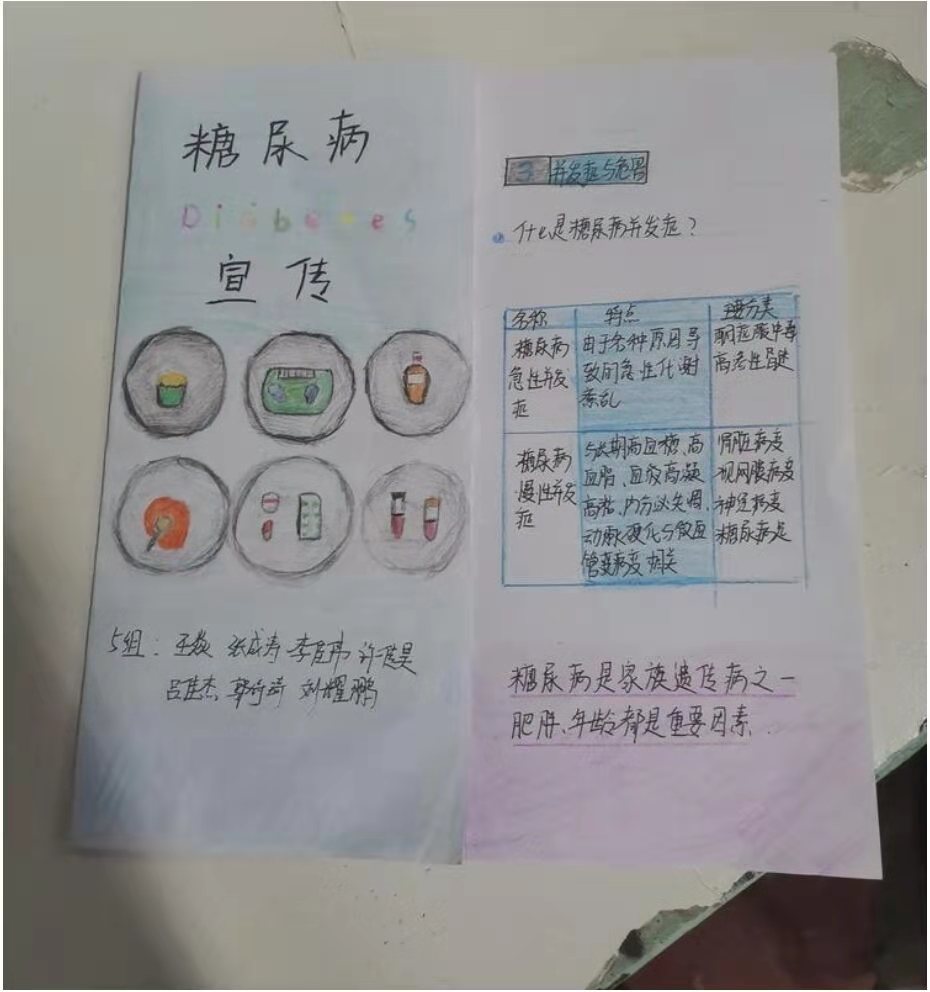 糖尿病
Diabetes
宣传
5组：王焱 张成涛 李
吕佳杰 郭 刘耀鹏
3 并发症与危害
什么是糖尿病并发症？
名称 特点 主要分类
糖尿病急性并发症
由于各种原因导致的急性代谢紊乱
酮症酸中毒
高渗性昏迷
糖尿病慢性并发症
与长期高血糖、高血脂、血液高凝高粘、内分泌失调、动脉硬化与微血管变病变相关
肾脏病变
视网膜病变
神经病变
糖尿病足
糖尿病是家族遗传病之一
肥胖、年龄都是重要因素.